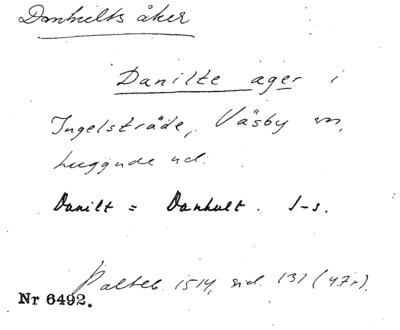 Danhults åker
Danilte ager i
Ingelsträde, Väsby sn,
liggande ud.
Danilt = Danhult. J-s.
Palteb. 1514, sid. 131 (47r).
Nr 6492.